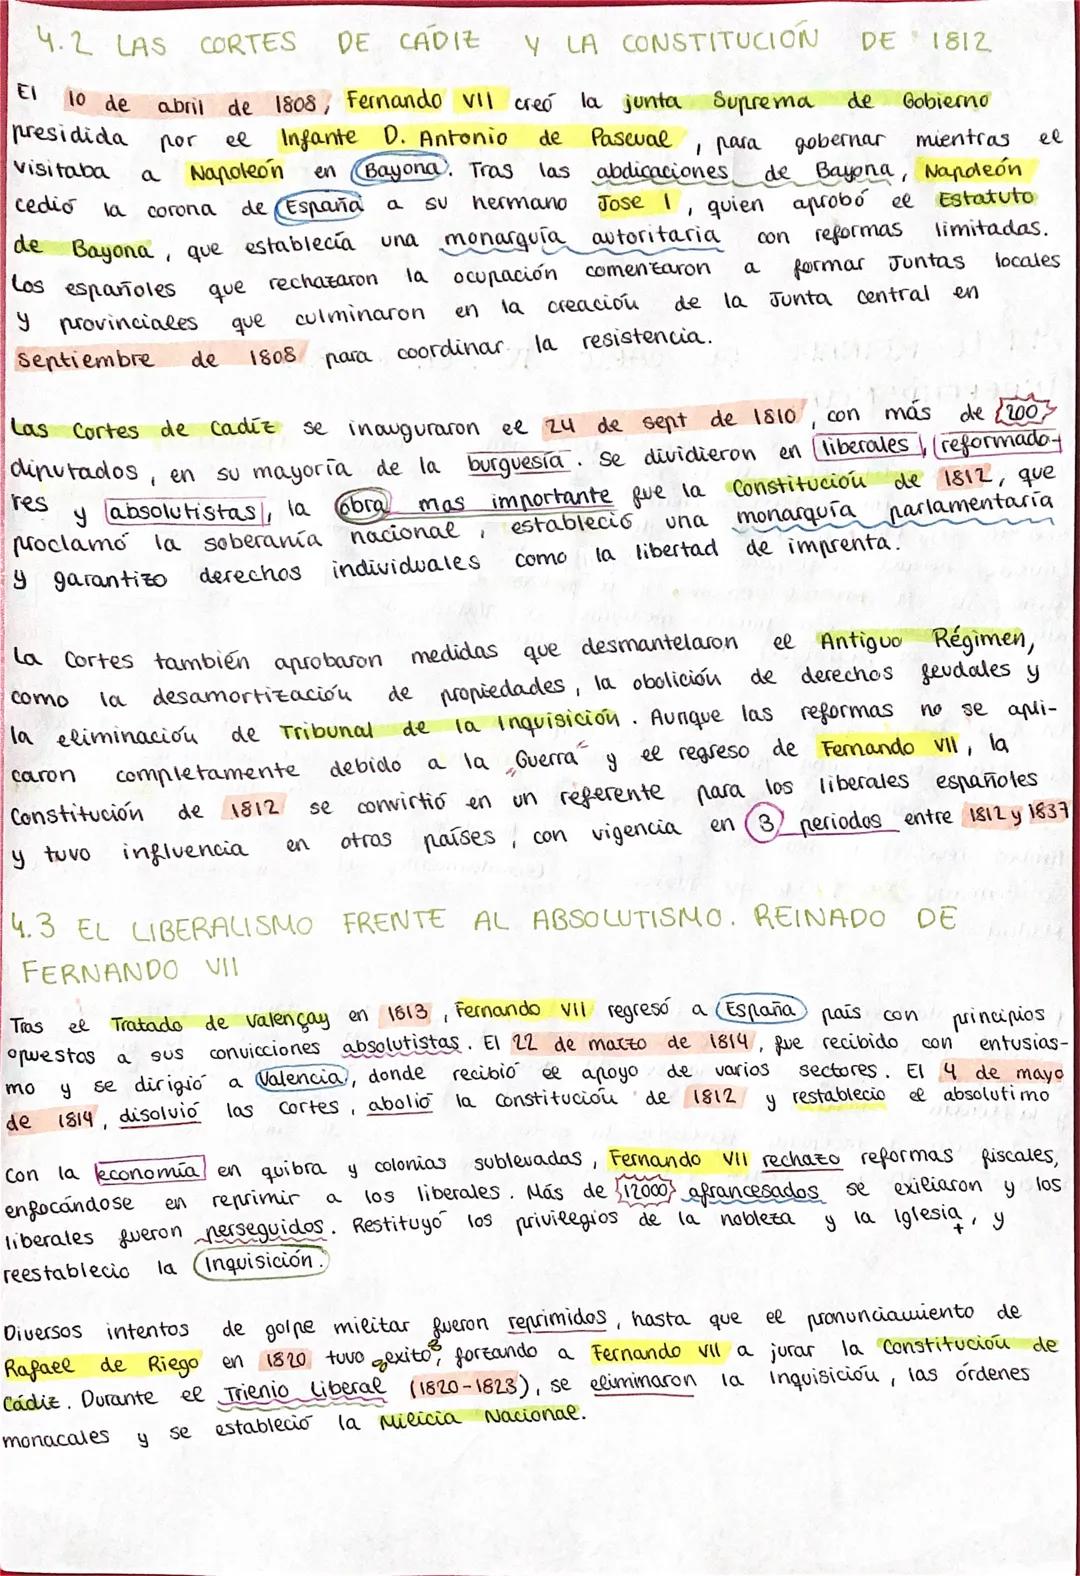 4.2 LAS CORTES DE CÁDIZ Y LA CONSTITUCIÓN DE 1812
El 10 de abril de 1808, Fernando VII creó la junta Suprema de Gobierno
presidida por el Infante D. Antonio de Pascual, para gobernar mientras el
visitaba a Napoleón en Bayona. Tras las abdicaciones de Bayona, Napoleón
cedió la corona de España a su hermano Jose I, quien aprobó el Estatuto
de Bayona, que establecía una monarquía autoritaria con reformas limitadas.
Los españoles que rechazaron la ocupación comenzaron a formar Juntas locales
y provinciales que culminaron en la creación de la Junta central en
Septiembre de 1808 para coordinar la resistencia.
Las Cortes de Cadíz se inauguraron el 24 de sept de 1810, con más de 200
diputados, en su mayoría de la burguesía. Se dividieron en liberales, reformado-
res y absolutistas, la obra mas importante fue la Constitución de 1812, que
proclamó la soberanía nacional, estableció una monarquía parlamentaria
y garantizo derechos individuales como la libertad de imprenta.
La Cortes también aprobaron medidas que desmantelaron el Antiguo Régimen,
como la desamortización de propiedades, la abolición de derechos feudales y
la eliminación de Tribunal de la Inquisición. Aunque las reformas no se apli-
caron completamente debido a la Guerra y el regreso de Fernando VII, la
Constitución de 1812 se convirtió en un referente para los liberales españoles
y tuvo influencia en otros países, con vigencia en 3 periodos entre 1812 y 1837
4.3 EL LIBERALISMO FRENTE AL ABSOLUTISMO. REINADO DE
FERNANDO VII
Tras el Tratado de Valençay en 1813, Fernando VII regresó a España país con principios
opuestos a sus convicciones absolutistas. El 22 de marzo de 1814, fue recibido con entusias-
mo y se dirigió a Valencia, donde recibió el apoyo de varios sectores. El 4 de mayo
de 1814, disolvió las Cortes, abolió la Constitución de 1812 y restablecio el absolutimo
Con la economía en quibra y colonias sublevadas, Fernando VII rechazo reformas fiscales,
enfocándose en reprimir a los liberales. Más de 12000 afrancesados se exiliaron y los
liberales fueron perseguidos. Restituyó los privilegios de la nobleza y la Iglesia, y
reestablecio la Inquisición.
Diversos intentos de golpe militar fueron reprimidos, hasta que el pronunciamiento de
Rafael de Riego en 1820 tuvo exito, forzando a Fernando VII a jurar la Constitución de
Cádiz. Durante el Trienio Liberal (1820-1823), se eliminaron la Inquisición, las órdenes
monacales y se estableció la Milicia Nacional.